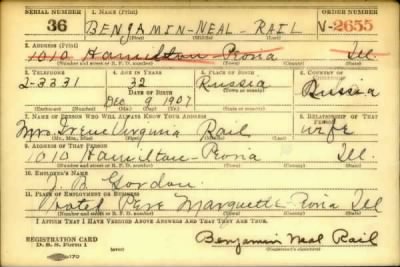 SERIAL NUMBER 1. NAME (Print) ORDER NUMBER
36 BENJAMIN-NEAL-RAIL V-2655
2. ADDRESS (Print)
1010 Hamilton Peoria Ill
(Number and street or R. F. D. number) (Town) (County) (State)
3. TELEPHONE 4. AGE IN YEARS 5. PLACE OF BIRTH 6. COUNTRY OF
2-3331 32 Russia Russia
DATE OF BIRTH
Dec 9 1907
(Exchange) (Number) (Mo.) (Day) (Yr.) (State or country)
7. NAME OF PERSON WHO WILL ALWAYS KNOW YOUR ADDRESS 8. RELATIONSHIP OF THAT PERSON
Mrs Irene Virginia Rail wife
(Mr., Mrs., Miss) (First) (Middle) (Last)
9. ADDRESS OF THAT PERSON
1010 Hamilton-Peoria Ill.
(Number and street or R. F. D. number) (Town) (County) (State)
10. EMPLOYER'S NAME
J B Gordon
11. PLACE OF EMPLOYMENT OR BUSINESS
Hotel Pere Marquette-Peoria Ill
(Number and street or R. F. D. number) (Town) (County) (State)
I AFFIRM THAT I HAVE VERIFIED ABOVE ANSWERS AND THAT THEY ARE TRUE.
REGISTRATION CARD
D. S. S. Form 1 Benjamin Neal Rail
(Registrant's signature)